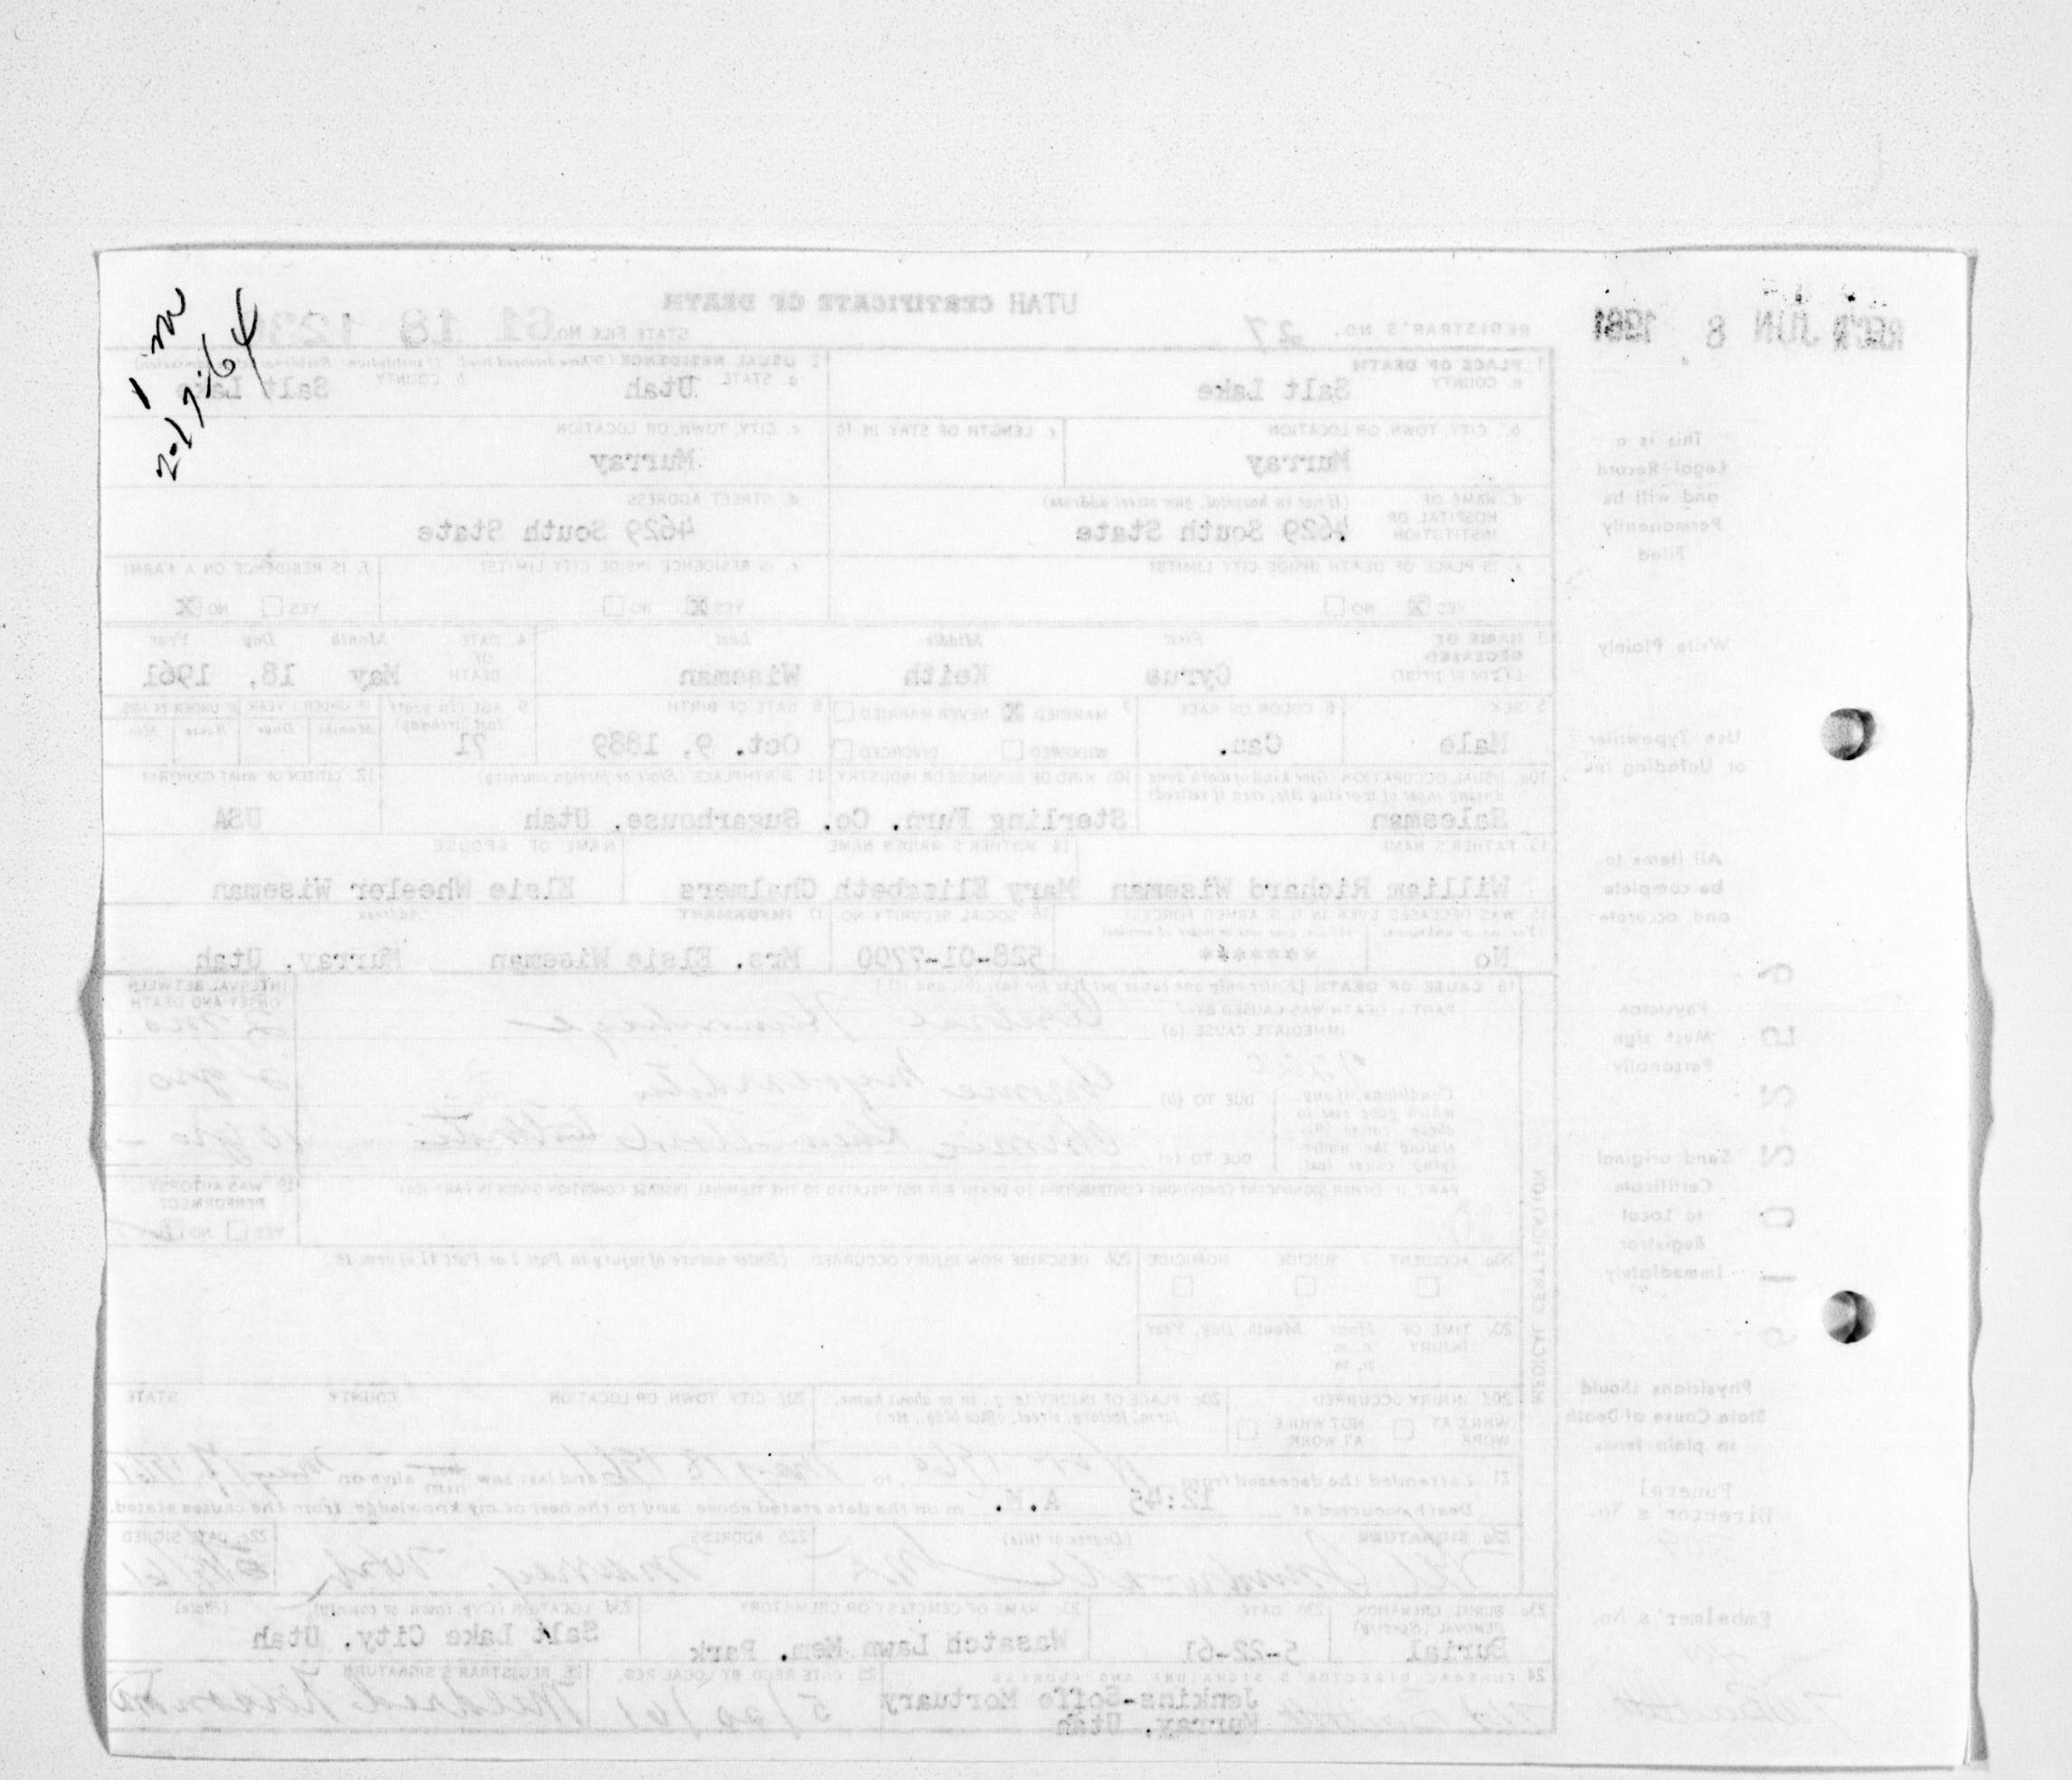 1 m
2-17-64
REC'D JUN 8 1961
UTAH CERTIFICATE OF DEATH
REGISTRAR'S NO. 27
STATE FILE NO. 61 18 123
1. PLACE OF DEATH
a. COUNTY Salt Lake
2. USUAL RESIDENCE (Where deceased lived. If institution: Residence before admission)
a. STATE Utah b. COUNTY Salt Lake
b. CITY, TOWN, OR LOCATION Murray
c. LENGTH OF STAY IN 1b
c. CITY, TOWN, OR LOCATION Murray
d. NAME OF HOSPITAL OR INSTITUTION (If not in hospital, give street address) 4629 South State
d. STREET ADDRESS 4629 South State
e. IS PLACE OF DEATH INSIDE CITY LIMITS? YES X NO
e. IS RESIDENCE INSIDE CITY LIMITS? YES X NO
f. IS RESIDENCE ON A FARM? YES NO X
3. NAME OF DECEASED (Type or print) First Cyrus Middle Keith Last Wiseman
4. DATE OF DEATH Month Day Year May 18, 1961
5. SEX Male
6. COLOR OR RACE Cau.
7. MARRIED X NEVER MARRIED WIDOWED DIVORCED
8. DATE OF BIRTH Oct. 9, 1889
9. AGE (In years last birthday) 71
IF UNDER 1 YEAR Months Days
IF UNDER 24 HRS. Hours Min.
10a. USUAL OCCUPATION (Give kind of work done during most of working life, even if retired) Salesman
10b. KIND OF BUSINESS OR INDUSTRY Sterling Furn. Co.
11. BIRTHPLACE (State or foreign country) Sugarhouse, Utah
12. CITIZEN OF WHAT COUNTRY? USA
13. FATHER'S NAME William Richard Wiseman
14. MOTHER'S MAIDEN NAME Mary Elizabeth Chalmers
NAME OF SPOUSE Elsie Wheeler Wiseman
15. WAS DECEASED EVER IN U. S. ARMED FORCES? (Yes, no, or unknown) No (If yes, give war or dates of service) *******
16. SOCIAL SECURITY NO. 528-01-7700
17. INFORMANT Mrs. Elsie Wiseman Address Murray, Utah
18. CAUSE OF DEATH [Enter only one cause per line for (a), (b), and (c).]
INTERVAL BETWEEN ONSET AND DEATH
PART I. DEATH WAS CAUSED BY:
IMMEDIATE CAUSE (a) Cerebral Hemorrhage 2 mo.
Conditions, if any, which gave rise to above cause (a), stating the underlying cause last.
DUE TO (b) Chronic Myocarditis yrs
DUE TO (c) Chronic yrs
PART II. OTHER SIGNIFICANT CONDITIONS CONTRIBUTING TO DEATH BUT NOT RELATED TO THE TERMINAL DISEASE CONDITION GIVEN IN PART I(a)
19. WAS AUTOPSY PERFORMED? YES NO
MEDICAL CERTIFICATION
20a. ACCIDENT SUICIDE HOMICIDE
20b. DESCRIBE HOW INJURY OCCURRED (Enter nature of injury in Part I or Part II of item 18.)
20c. TIME OF INJURY Hour Month, Day, Year a. m. p. m.
20d. INJURY OCCURRED WHILE AT WORK NOT WHILE AT WORK
20e. PLACE OF INJURY (e. g., in or about home, farm, factory, street, office bldg., etc.)
20f. CITY, TOWN, OR LOCATION COUNTY STATE
21. I attended the deceased from 1960, to May 18 1961 and last saw him alive on May 17, 1961
Death occurred at 12:45 A.M. m on the date stated above; and to the best of my knowledge, from the causes stated.
22a. SIGNATURE (Degree or title)
22b. ADDRESS Murray, Utah
22c. DATE SIGNED
23a. BURIAL, CREMATION, REMOVAL (Specify) Burial
23b. DATE 5-22-61
23c. NAME OF CEMETERY OR CREMATORY Wasatch Lawn Mem. Park
23d. LOCATION (City, town, or county) (State) Salt Lake City, Utah
24. FUNERAL DIRECTOR'S SIGNATURE AND ADDRESS Jenkins-Soffe Mortuary Murray, Utah
25. DATE RECD BY LOCAL REG. 5/20/61
26. REGISTRAR'S SIGNATURE Mildred
This is a
Legal Record
and will be
Permanently
Filed
Write Plainly
Use Typewriter
or Unfading Ink
All items to
be complete
and accurate
Physician
Must sign
Personally
Send original
Certificate
to Local
Registrar
Immediately
Physicians should
State Cause of Death
in plain terms
Funeral
Director's No.
Embalmer's No.